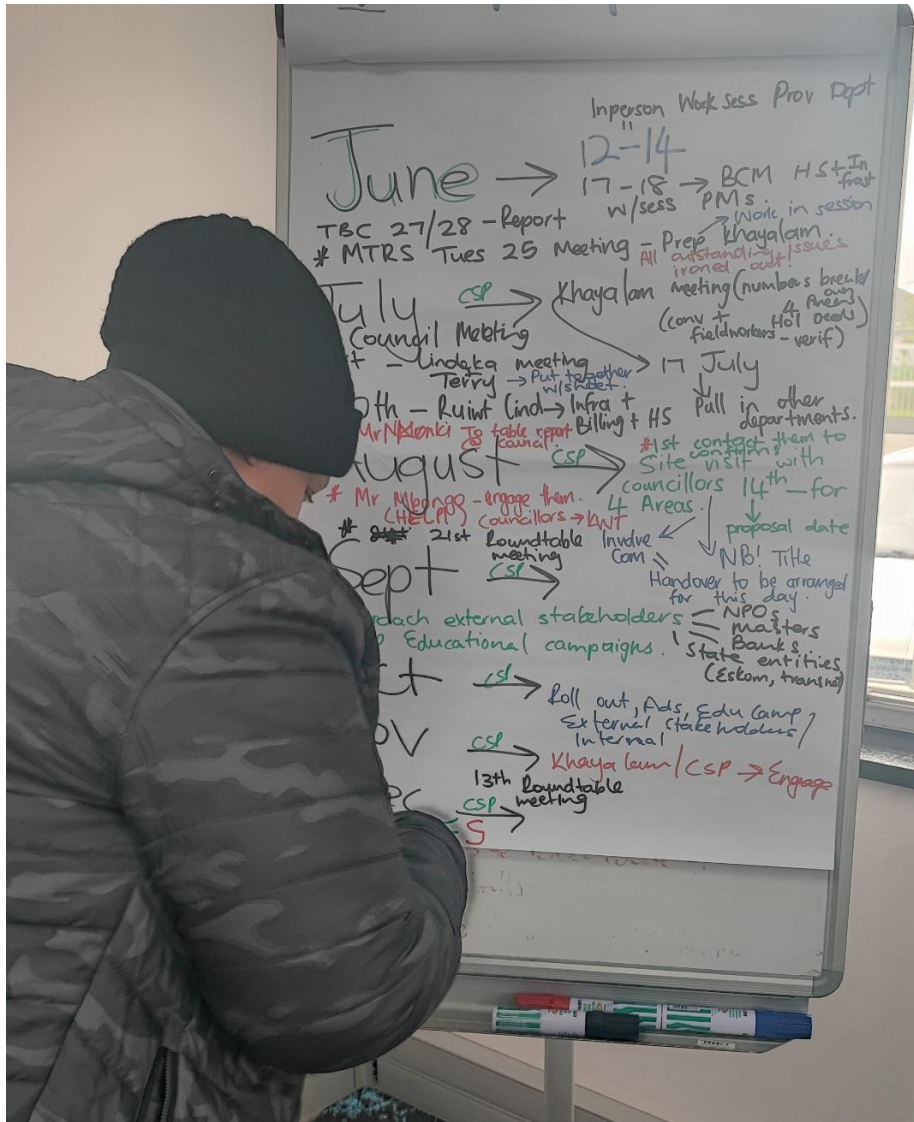 Inperson Work Sess Prov Dept
June → 12-14
17-18 → BCM HS + Infrast
w/sess PMs.
TBC 27/28 - Report
→ Work in session
# MTRS Tues 25 Meeting - Prep Khayalam.
All outstanding issues
ironed out!
July CSP → Khayalam Meeting (numbers break/own
4 Areas
(conv + Hol Deeds)
fieldworkers - verif)
Council Meeting
- Lindaka meeting
Terry → Put together
w/sheet.
17 July
↓
Pull in other
departments.
0th - Ruint (ind → Infra +
Billing + HS
To table report
to council.
August CSP →
#1st contact them to
confirm
Site visit with
councillors 14th - for
4 Areas.
↓
proposal date
# Mr Mbongo - engage them.
(HELP) councillors →
# 21st Roundtable
meeting
Involve
Com
NB! Title
Handover to be arranged
for this day.
Sept CSP →
external stakeholders
NPOs
Masters
Banks
State entities
(Eskom, transnet)
Educational campaigns.
ct →
Roll out, Ads, Edu Camp/
External stakeholders/
Internal
ov CSP → Khaya lam/CSP → Engage
13th Roundtable
meeting
ec CSP →
S